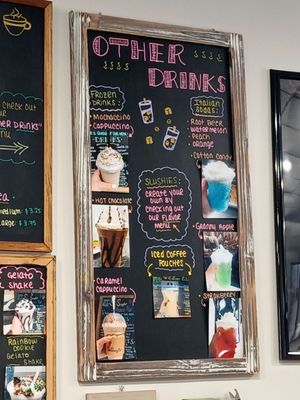 Check out
HER DRINKS"
NU
medium: $3.75
Large: $3.95
Gelato
Shake
Rainbow
Cookie
Gelato Shake
OTHER
$$$$
DRINKS
Frozen
Drinks
• Mochaccino
• Cappuccino
Italian
Sodas:
Root Beer
Watermelon
Peach
Orange
• Cotton Candy
SLUSHIES:
CREATE YOUR
OWN BY
CHECKING
OUT OUR
FLAVOR
MENU
• Hot Chocolate
• Granny Apple
ICED COFFEE
POUCHES
• Caramel
Cappuccino
• Strawberry